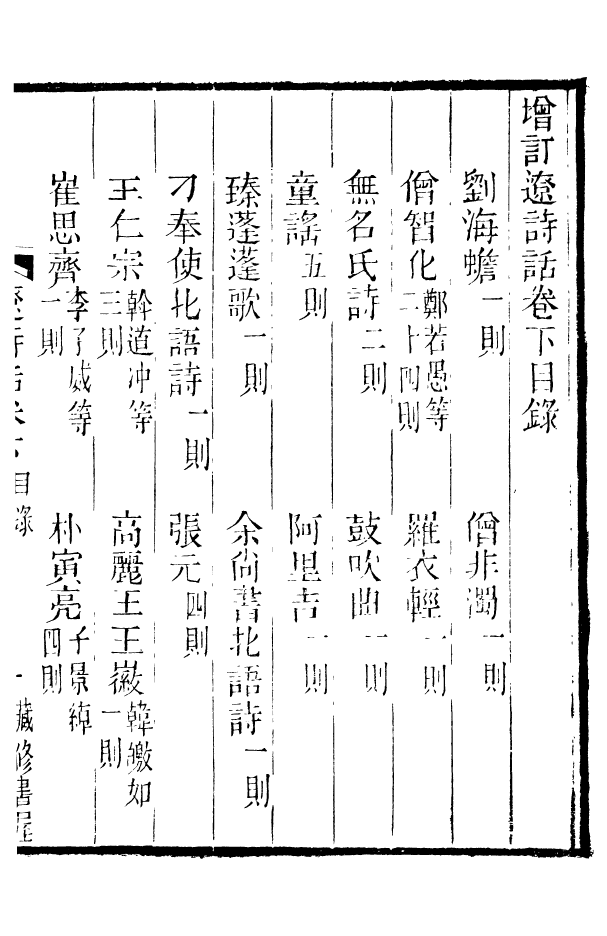 增訂遼詩話卷下目錄
劉海蟾一則　僧非濁一則
僧智化鄭若愚等二十四則　羅衣輕一則
無名氏詩二則　鼓吹曲一則
童謠五則　阿里吉一則
臻蓬蓬歌一則　余尚書北語詩一則
刁奉使北語詩一則　張元四則
王仁宗斡道冲等三則　高麗王王徽韓繳如一則
崔思齊李子威等一則　朴寅亮子景綽四則
遼詩話卷下目錄　一　藏修書屋